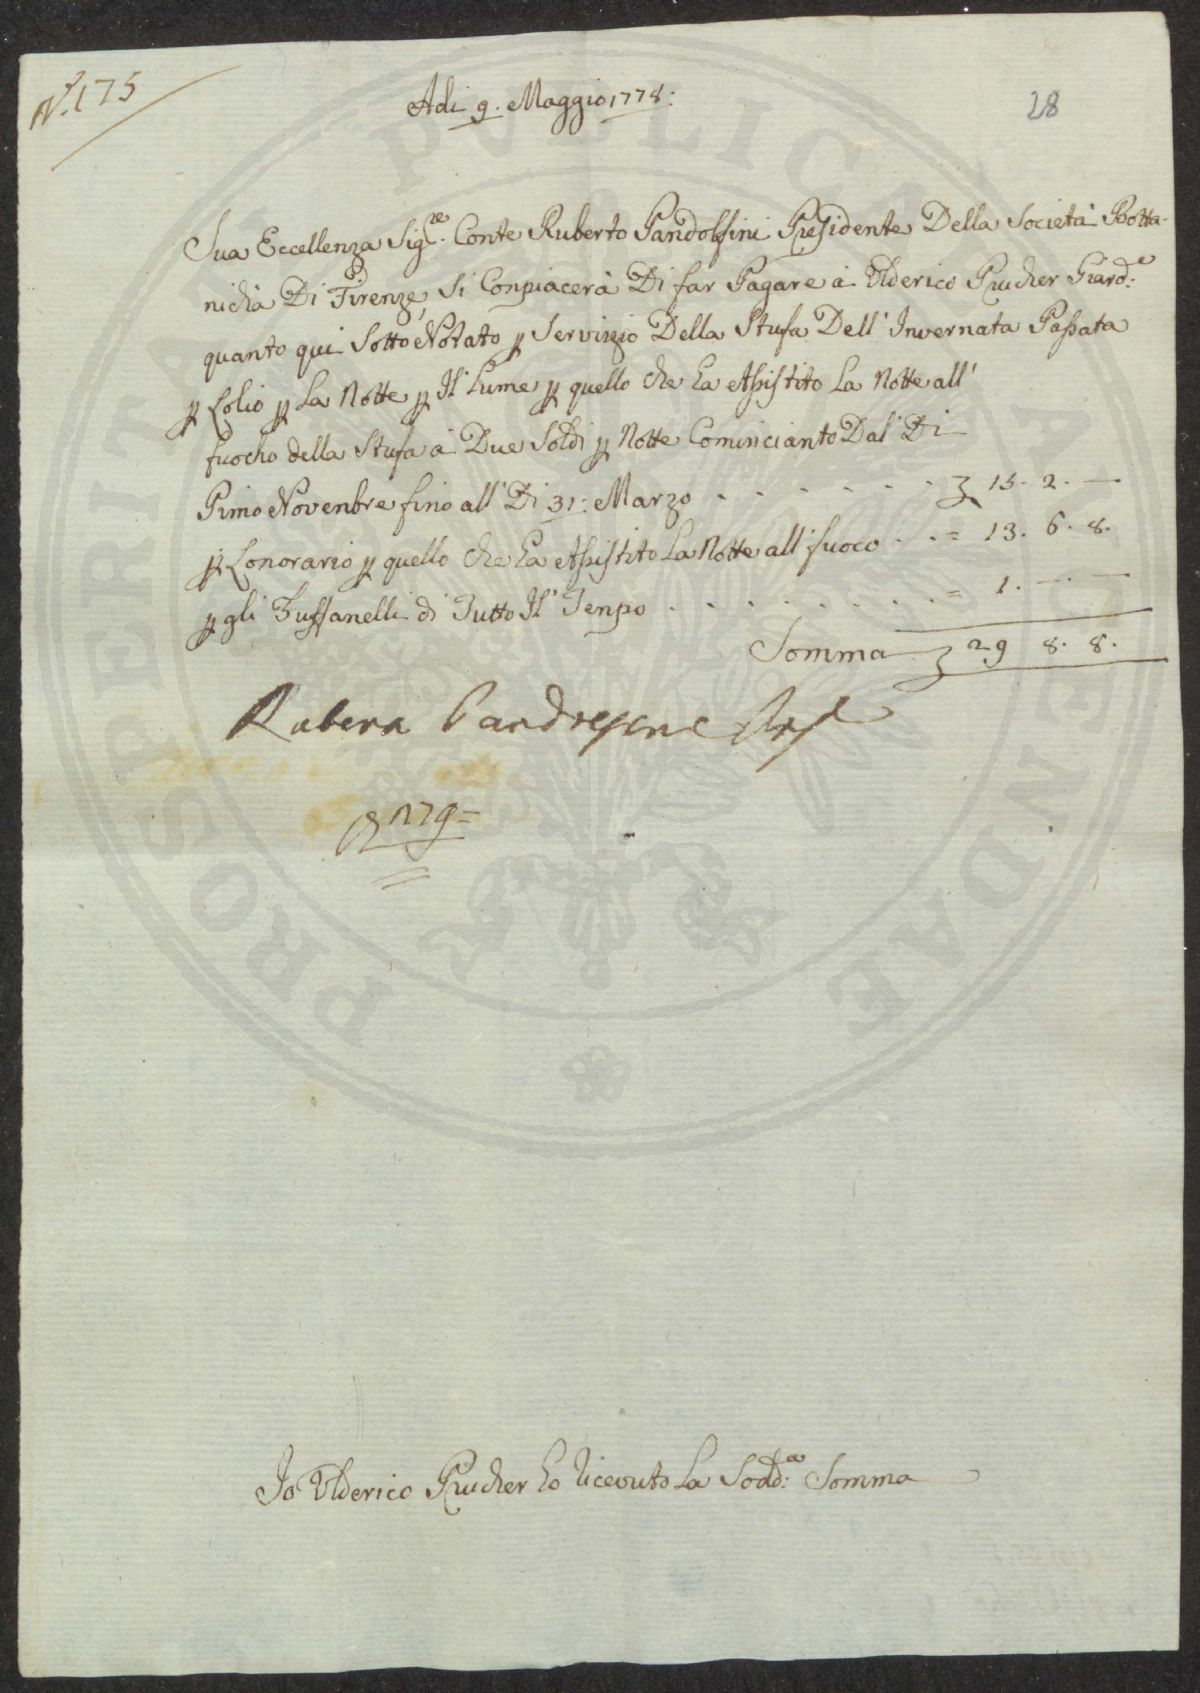 N.° 175
Adi 9. Maggio 1778:
28
Sua Eccellenza Sig.re Conte Ruberto Pandolfini Presidente Della Società Botta-
nicha Di Firenze, Si Conpiacerà Di far Pagare a Ulderico Prucher Giard:e
quanto qui Sotto Notato p Servizio Della Stufa Dell' Invernata Passata
p Lolio p La Notte p Il Lume p quello che ha Assistito La Notte all'
fuocho della Stufa a Due Soldi p Notte Comincianto Dal' Di
Pimo Novenbre fino all' Di 31: Marzo . . . . . . . 15. 2. —
p Lonorario p quello che ha Assistito La Notte all' fuoco . . = 13. 6. 8.
p gli Zuffanelli di Tutto Il' Tenpo . . . . . . . . = 1. — . —
Somma 29 8. 8.
179 =
Io Ulderico Prucher ho riceouto La Sodd:a Somma
PUBLICAE
PROSPERITATI
AUGENDAE